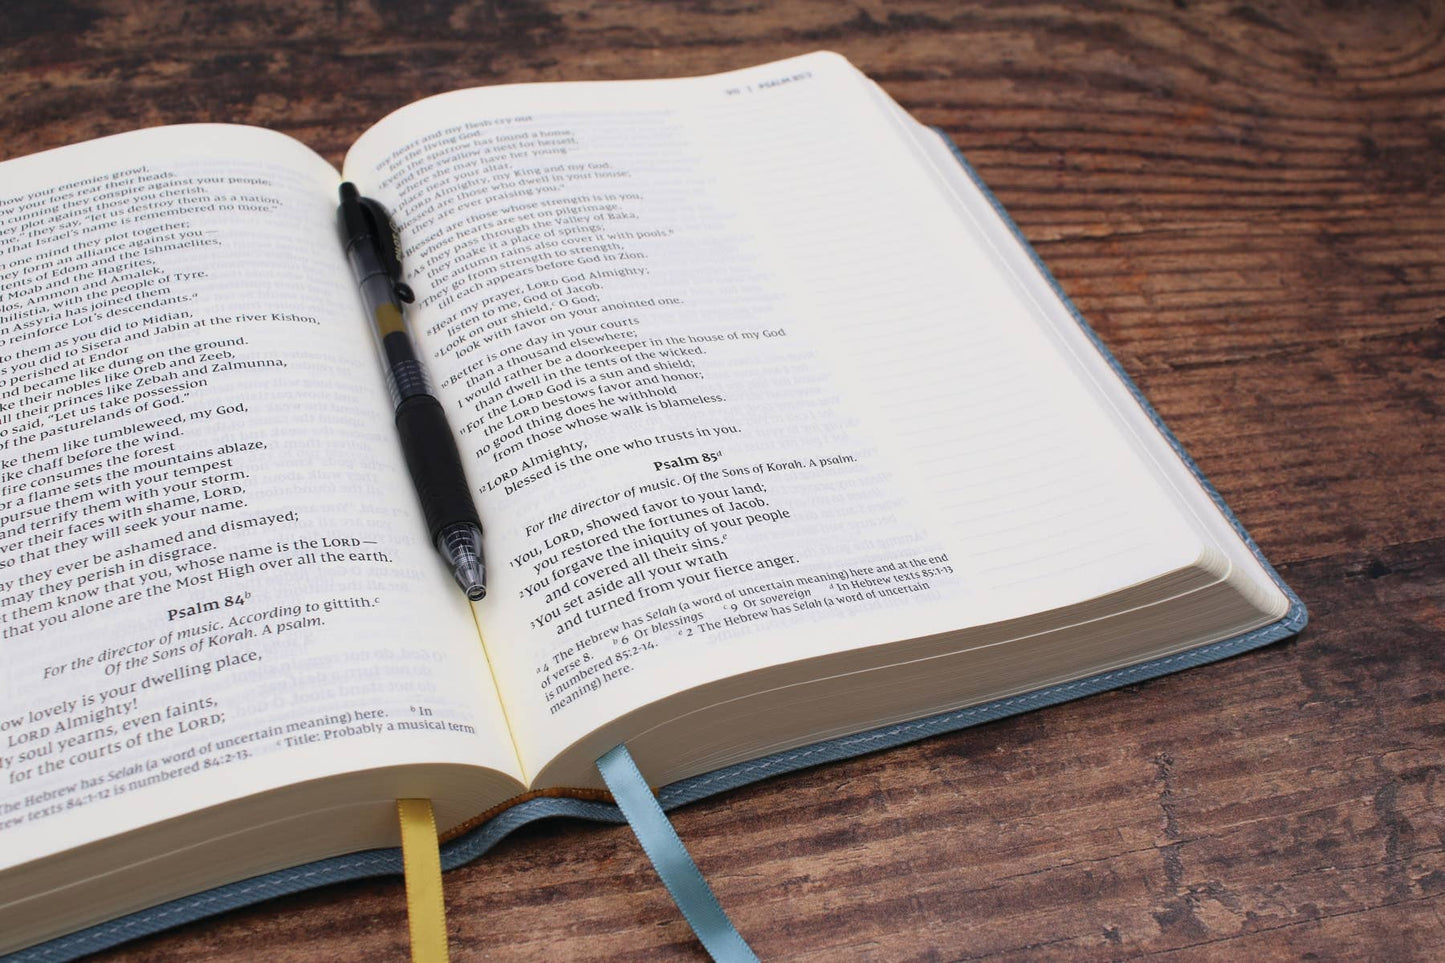 ow your enemies growl,
w your foes rear their heads.
cunning they conspire against your people;
plot against those you cherish.
me," they say, "let us destroy them as a nation,
that Israel's name is remembered no more."
one mind they plot together;
ey form an alliance against you—
ents of Edom and the Ishmaelites,
f Moab and the Hagrites,
los, Ammon and Amalek,
hilistia, with the people of Tyre.
n Assyria has joined them
o reinforce Lot's descendants.ᵃ
to them as you did to Midian,
s you did to Sisera and Jabin at the river Kishon,
o perished at Endor
nd became like dung on the ground.
ke their nobles like Oreb and Zeeb,
ll their princes like Zebah and Zalmunna,
o said, "Let us take possession
of the pasturelands of God."
ke them like tumbleweed, my God,
like chaff before the wind.
fire consumes the forest
r a flame sets the mountains ablaze,
pursue them with your tempest
and terrify them with your storm.
ver their faces with shame, LORD,
so that they will seek your name.
ay they ever be ashamed and dismayed;
may they perish in disgrace.
et them know that you, whose name is the LORD—
that you alone are the Most High over all the earth.
Psalm 84ᵇ
For the director of music. According to gittith.ᶜ
Of the Sons of Korah. A psalm.
ow lovely is your dwelling place,
LORD Almighty!
y soul yearns, even faints,
for the courts of the LORD;
The Hebrew has Selah (a word of uncertain meaning) here. ᵇ In
rew texts 84:1-12 is numbered 84:2-13. ᶜ Title: Probably a musical term
PSALM 85:3
my heart and my flesh cry out
for the living God.
³Even the sparrow has found a home,
and the swallow a nest for herself,
where she may have her young—
place near your altar,
LORD Almighty, my King and my God.
Blessed are those who dwell in your house;
they are ever praising you.ᵃ
Blessed are those whose strength is in you,
whose hearts are set on pilgrimage.
⁶As they pass through the Valley of Baka,
they make it a place of springs;
the autumn rains also cover it with pools.ᵇ
⁷They go from strength to strength,
till each appears before God in Zion.
⁸Hear my prayer, LORD God Almighty;
listen to me, God of Jacob.
⁹Look on our shield,ᶜ O God;
look with favor on your anointed one.
¹⁰Better is one day in your courts
than a thousand elsewhere;
I would rather be a doorkeeper in the house of my God
than dwell in the tents of the wicked.
¹¹For the LORD God is a sun and shield;
the LORD bestows favor and honor;
no good thing does he withhold
from those whose walk is blameless.
¹²LORD Almighty,
blessed is the one who trusts in you.
Psalm 85ᵈ
For the director of music. Of the Sons of Korah. A psalm.
¹You, LORD, showed favor to your land;
you restored the fortunes of Jacob.
²You forgave the iniquity of your people
and covered all their sins.ᵉ
³You set aside all your wrath
and turned from your fierce anger.
ᵃ 4 The Hebrew has Selah (a word of uncertain meaning) here and at the end
of verse 8. ᵇ 6 Or blessings ᶜ 9 Or sovereign ᵈ In Hebrew texts 85:1-13
is numbered 85:2-14. ᵉ 2 The Hebrew has Selah (a word of uncertain
meaning) here.